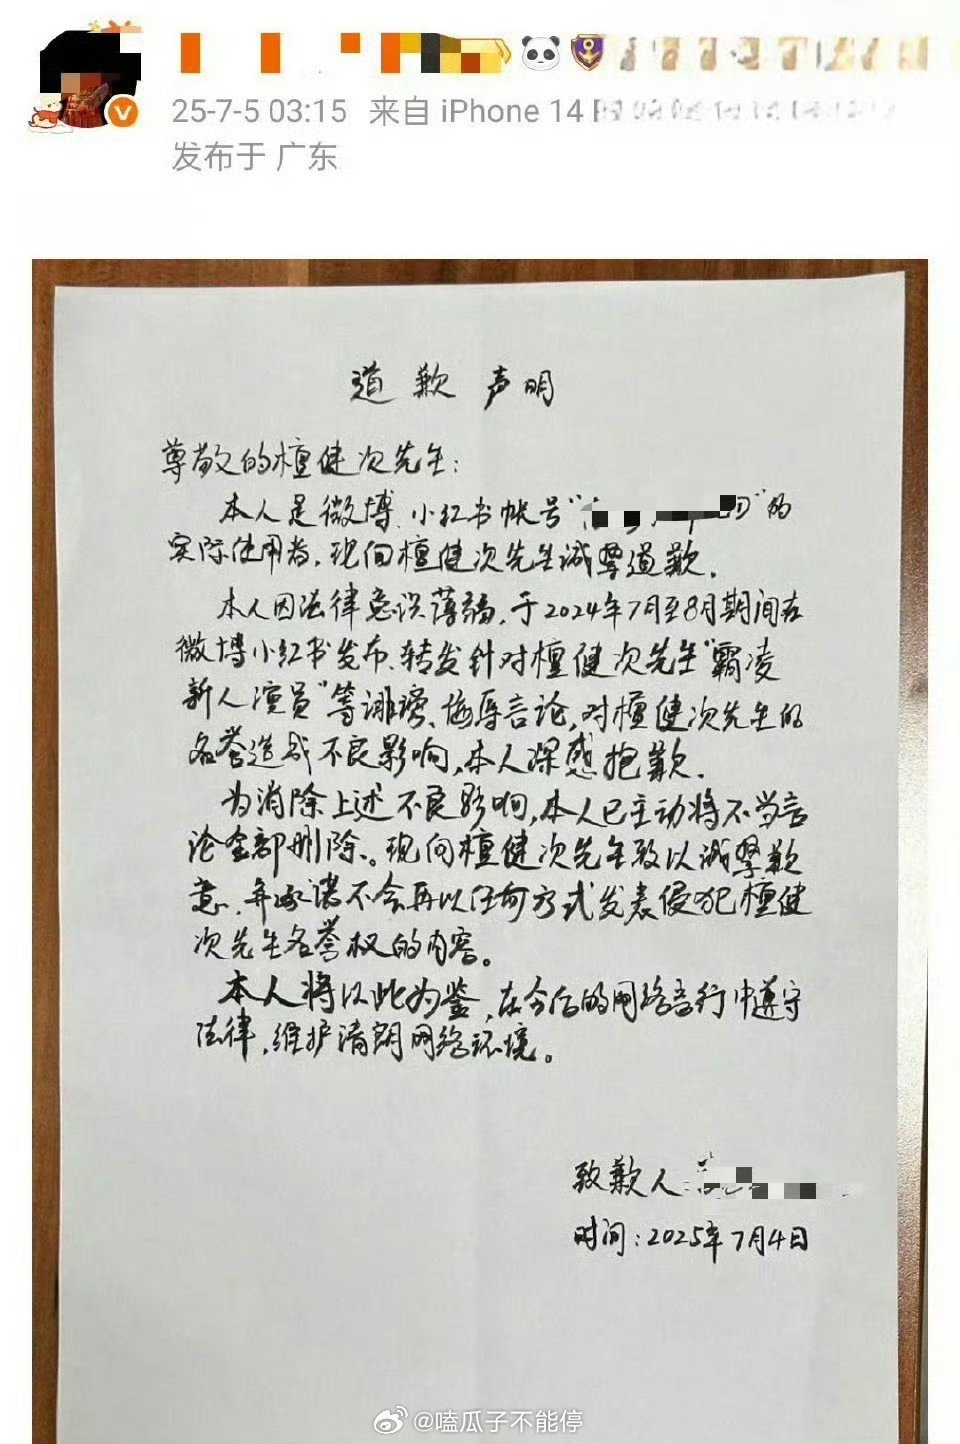 25-7-5 03:15 来自 iPhone 14
发布于 广东
道歉声明
尊敬的檀健次先生：
本人是微博、小红书帐号“ ”的
实际使用者，现向檀健次先生诚挚道歉。
本人因法律意识薄弱，于2024年7月至8月期间在
微博小红书发布、转发针对檀健次先生“霸凌
新人演员”等诽谤、侮辱言论，对檀健次先生的
名誉造成不良影响，本人深感抱歉。
为消除上述不良影响，本人已主动将不当言
论全部删除。现向檀健次先生致以诚挚歉
意，并承诺不会再以任何方式发表侵犯檀健
次先生名誉权的内容。
本人将以此为鉴，在今后的网络言行中遵守
法律，维护清朗网络环境。
致歉人
时间：2025年7月4日
@嗑瓜子不能停